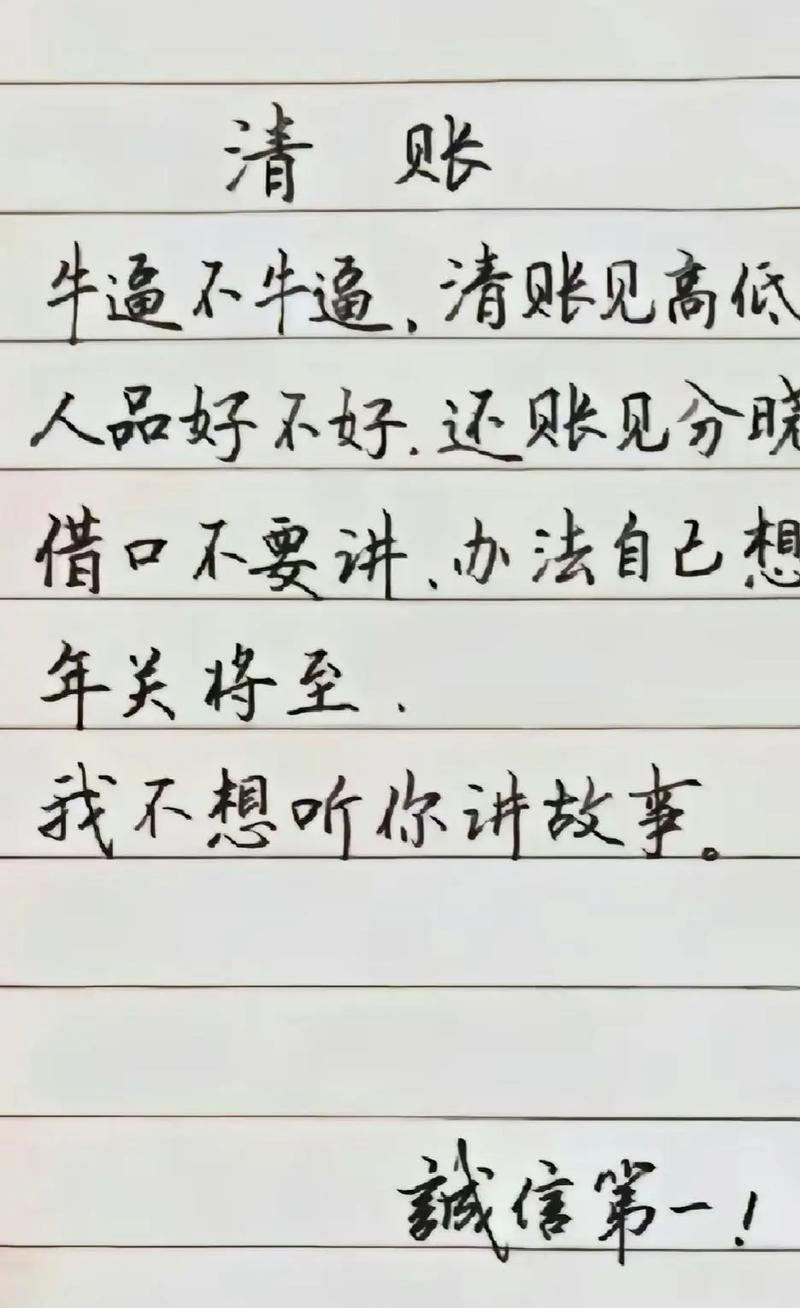 清 账
牛逼不牛逼、清账见高低
人品好不好.还账见分晓
借口不要讲、办法自己想
年关将至.
我不想听你讲故事。
誠信第一!